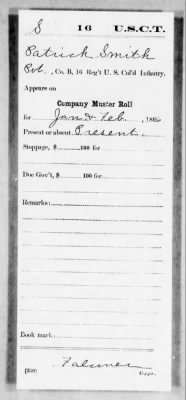 S 16 U.S.C.T.
Patrick Smith
Pvt., Co. B, 16 Reg't U. S. Col'd Infantry.
Appears on
Company Muster Roll
for Jan & Feb, 1866
Present or absent Present
Stoppage, $ 100 for
Due Gov't, $ 100 for
Remarks:
Book mark:
(358) Copyist.